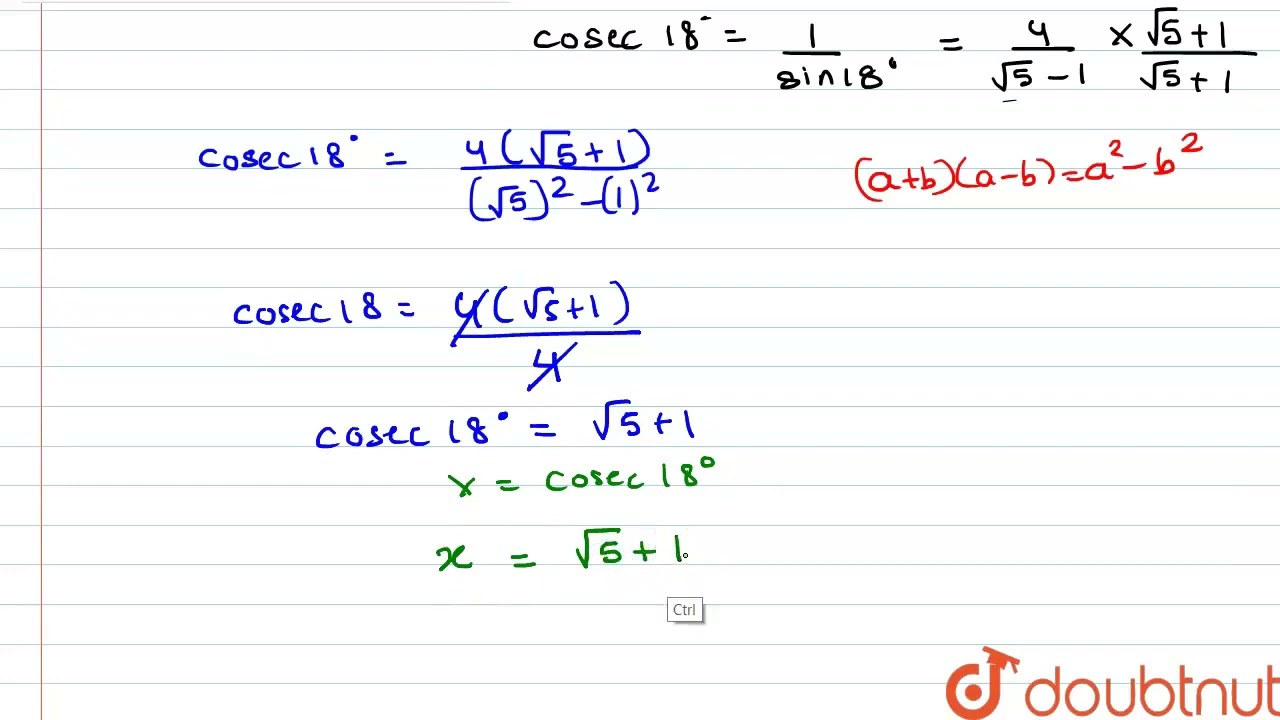 cosec 18° = 1/sin18° = 4/√5 − 1 × √5 + 1/√5 + 1
cosec 18° = 4(√5 + 1)/(√5)² − (1)²
(a+b)(a−b) = a² − b²
cosec 18 = 4(√5 + 1)/4
cosec 18° = √5 + 1
x = cosec 18°
x = √5 + 1
Ctrl
doubtnut